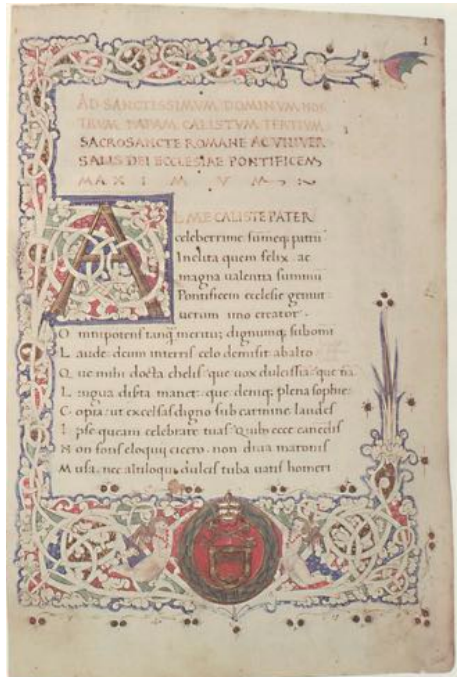 1
AD SANCTISSIMVM DOMINVM NOS
TRVM PAPAM CALISTVM TERTIVM
SACROSANCTE ROMANE AC VNIVER
SALIS DEI ECCLESIAE PONTIFICEM
MAXIMVM
ALME CALISTE PATER
celeberrime
Inclita quem felix ac
magna valentia summū
Pontificem ecclesie genuit
uerum uno creator
O mnipotens tanq̄ meritū dignumq;
L aude deum in terris celo demisit ab alto
Q ue mihi docta chelis que uox dulcissima que
L ingua diserta manet que deniq; plena sophie
C opia ut excelsas digno sub carmine laudes
I pse queam celebrare tuas Quib; ecce canendis
N on fons eloquii cicero non diua maronis
M usa nec altiloqui dulcis tuba uatis homeri